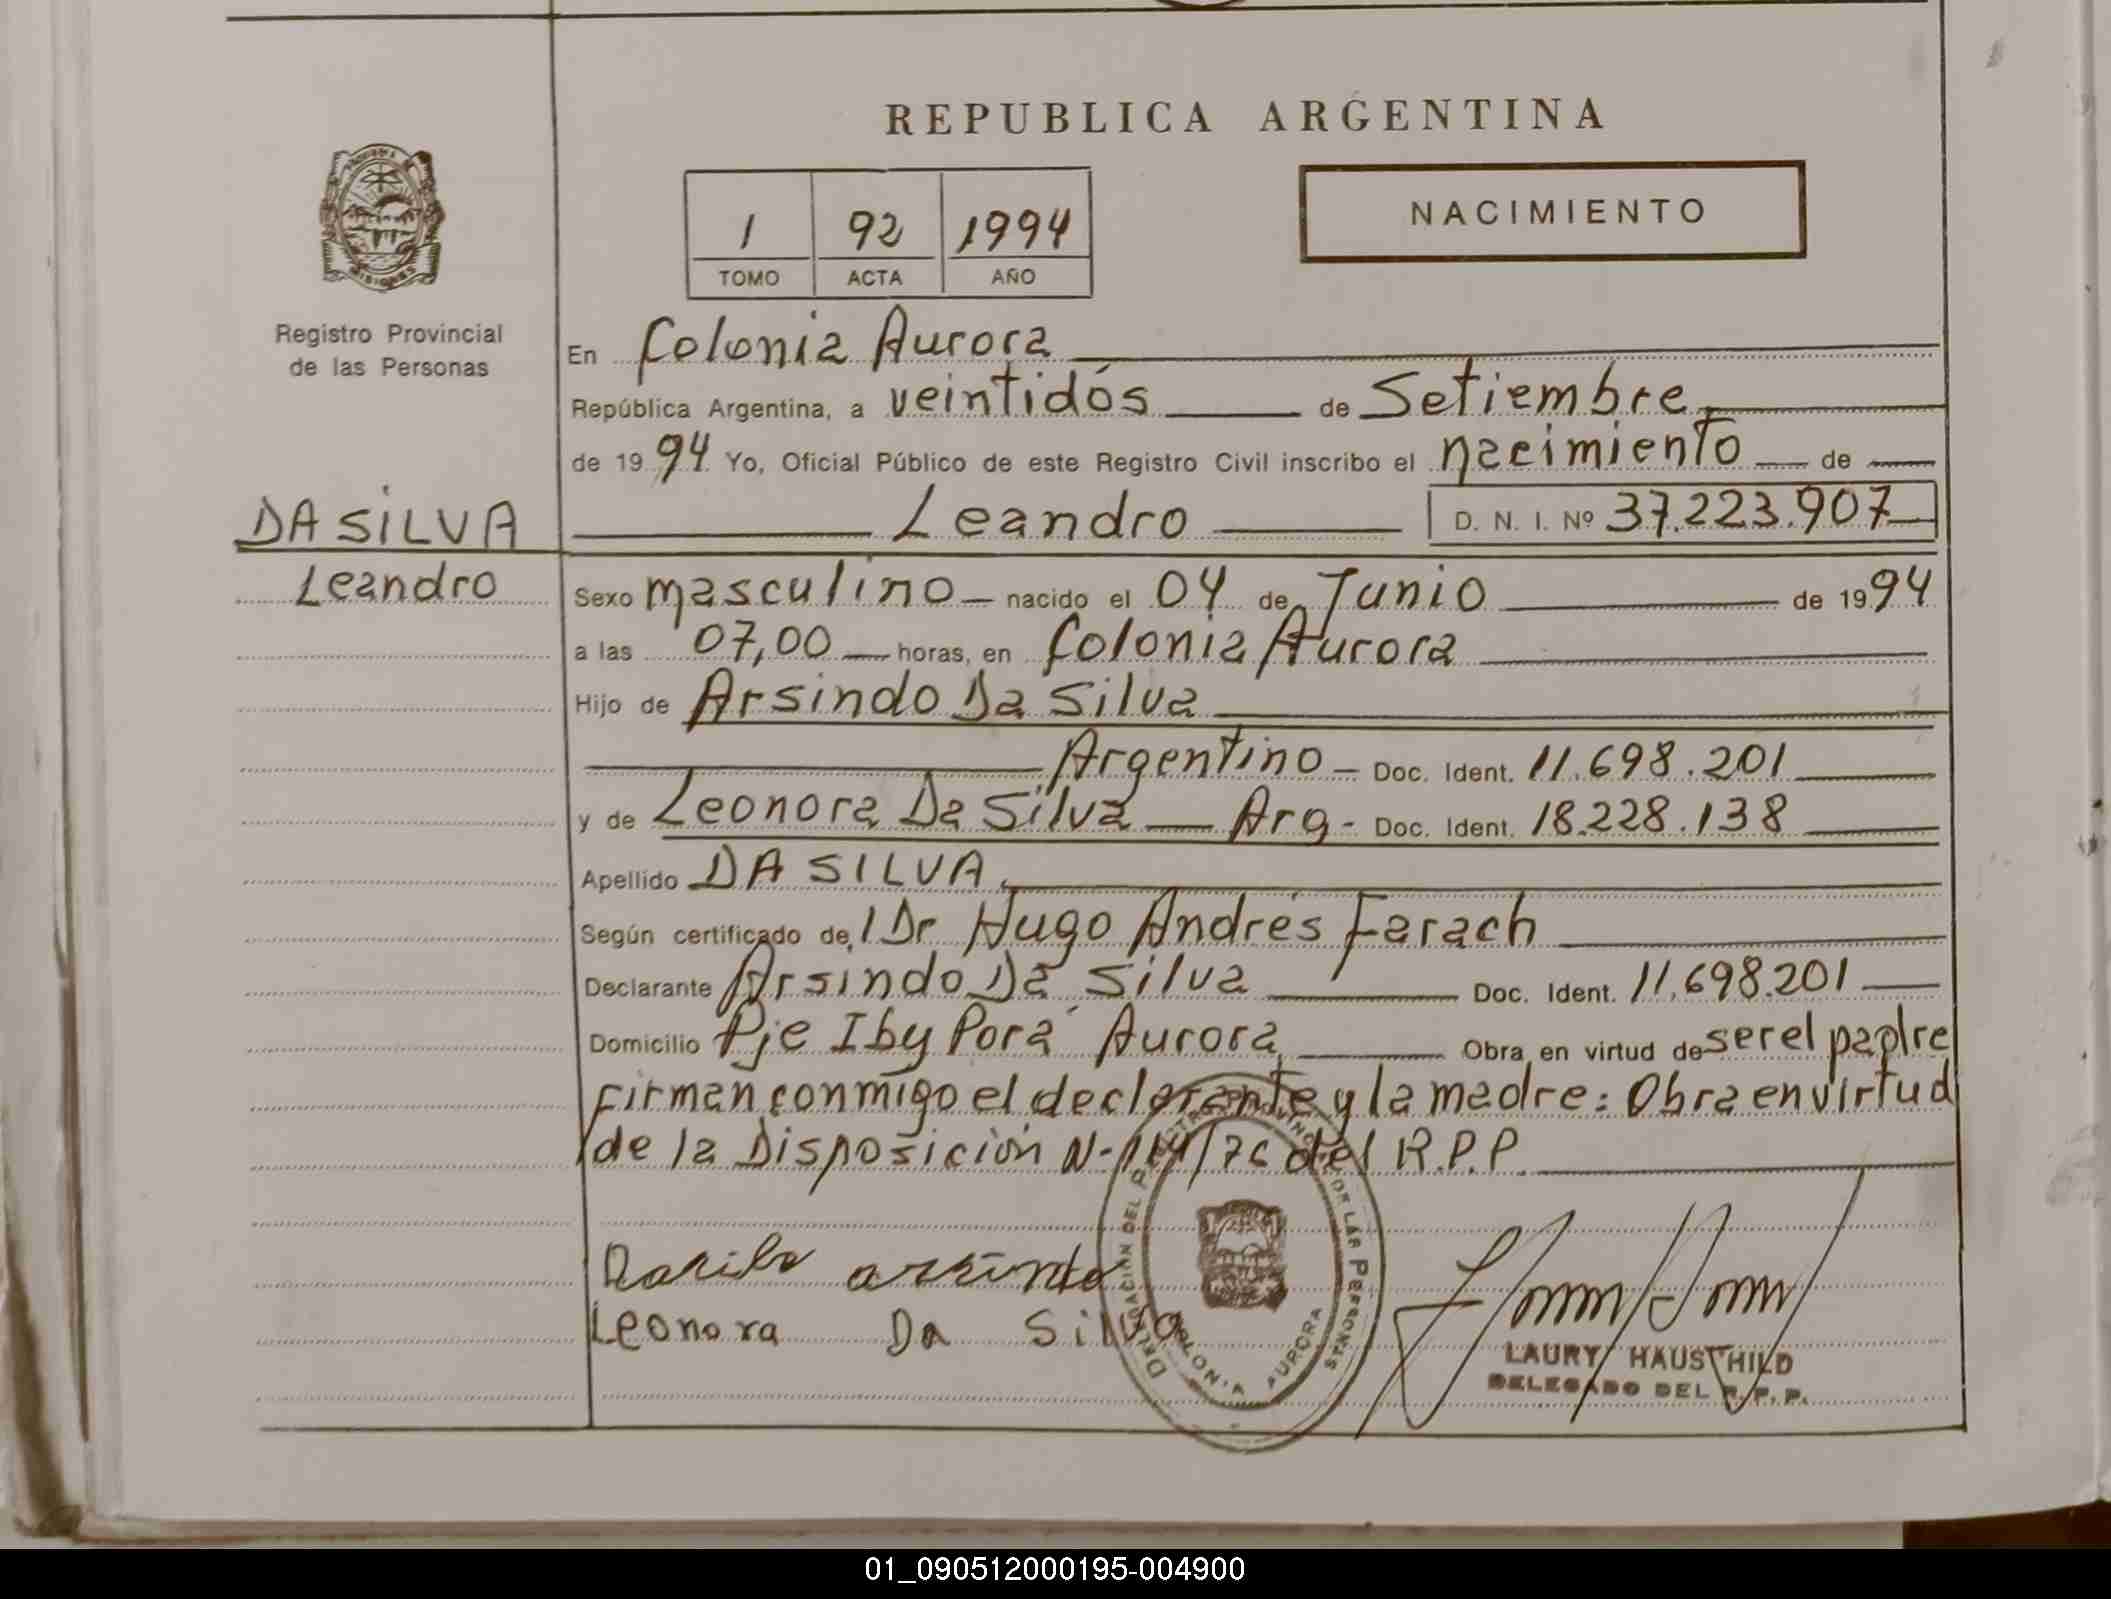 REPUBLICA ARGENTINA
NACIMIENTO
1 92 1994
TOMO ACTA AÑO
Registro Provincial
de las Personas
En Colonia Aurora
República Argentina, a veintidós de Setiembre
de 1994 Yo, Oficial Público de este Registro Civil inscribo el nacimiento de
DA SILVA
Leandro D. N. I. Nº 37.223.907
Leandro
Sexo masculino nacido el 04 de Junio de 1994
a las 07,00 horas, en Colonia Aurora
Hijo de Arsindo Da Silva
Argentino Doc. Ident. 11.698.201
y de Leonora Da Silva Arg- Doc. Ident. 18.228.138
Apellido DA SILVA
Según certificado del Dr Hugo Andrés Farach
Declarante Arsindo Da Silva Doc. Ident. 11.698.201
Domicilio Pje Iby Porá Aurora Obra en virtud de ser el padre
Firman conmigo el declarante y la madre: Obra en virtud
de la Disposición N- /76 del R.P.P.
Dasilva arsindo
Leonora Da Silva
DELEGACIÓN DEL REGISTRO PROVINCIAL DE LAS PERSONAS
COLONIA AURORA
LAURY HAUSCHILD
DELEGADO DEL R. P. P.
01_090512000195-004900